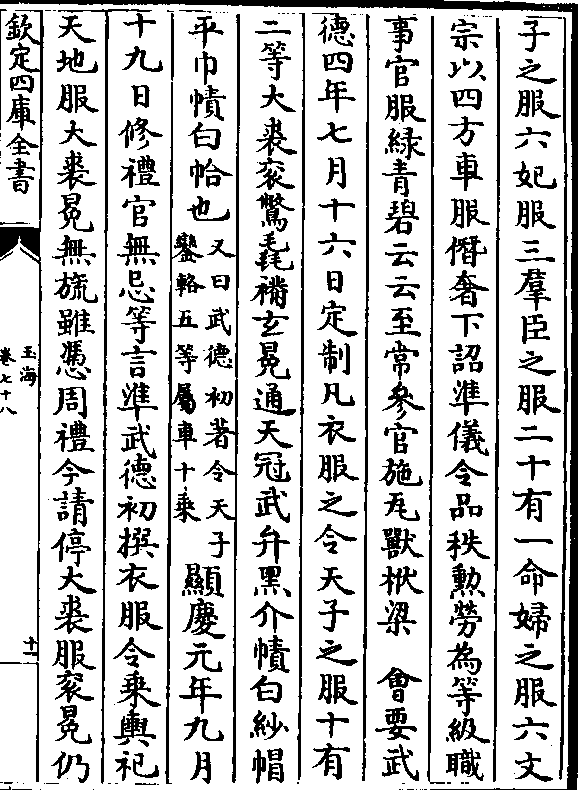 子之服六妃服三羣臣之服二十有一命婦之服六文
宗以四方車服僭奢下詔準儀令品秩勲勞為等級職
事官服緑青碧云云至常參官施瓦獸栿梁　會要武
德四年七月十六日定制凡衣服之令天子之服十有
二等大裘衮鷩毳襂玄冕通天冠武弁黑介幘白紗帽
平巾幘白帢也又曰武德初著令天子
鑾輅五等屬車十乘顯慶元年九月
十九日修禮官無忌等言準武德初撰衣服令乘輿祀
天地服大裘冕無旒雖憑周禮今請停大裘服衮冕仍
欽定四庫全書
玉海
卷七十八
十一